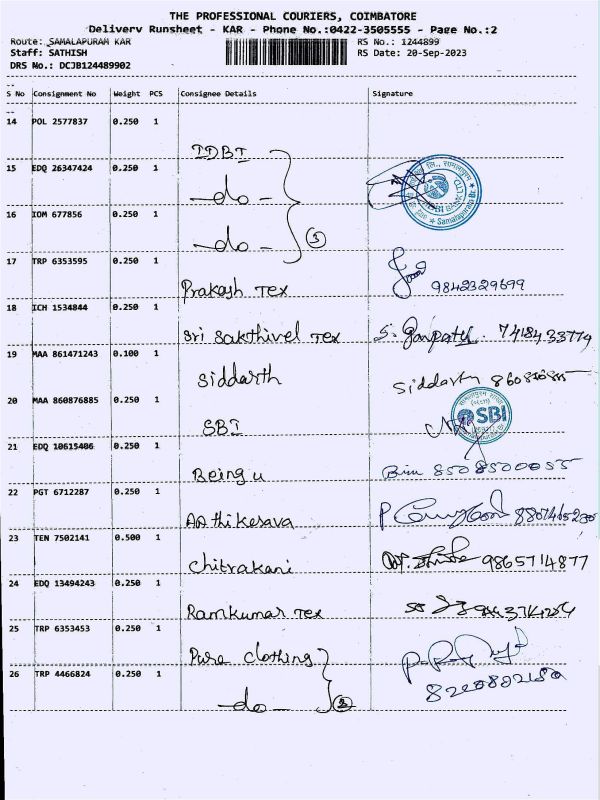 THE PROFESSIONAL COURIERS, COIMBATORE
Delivery Runsheet - KAR - Phone No.:0422-3505555 - Page No.:2
Route: SAMALAPURAM KAR RS No.: 1244899
Staff: SATHISH RS Date: 20-Sep-2023
DRS No.: DCJB124489902
S No Consignment No Weight PCS Consignee Details Signature
14 POL 2577837 0.250 1
IDBI
15 EDQ 26347424 0.250 1
-do-
16 IOM 677856 0.250 1
-do- 3
17 TRP 6353595 0.250 1
Prakash Tex 9842329699
18 ICH 1534844 0.250 1
Sri Sakthivel Tex S. Ganpathy 7418433779
19 MAA 861471243 0.100 1
Siddarth Siddarth
20 MAA 860876885 0.250 1
SBI SBI
21 EDQ 10615406 0.250 1
Being u 8508500055
22 PGT 6712287 0.250 1
Aathikesava
23 TEN 7502141 0.500 1
Chitrakani 9865714877
24 EDQ 13494243 0.250 1
Ramkumar Tex
25 TRP 6353453 0.250 1
Pure clothing
26 TRP 4466824 0.250 1
-do- 2